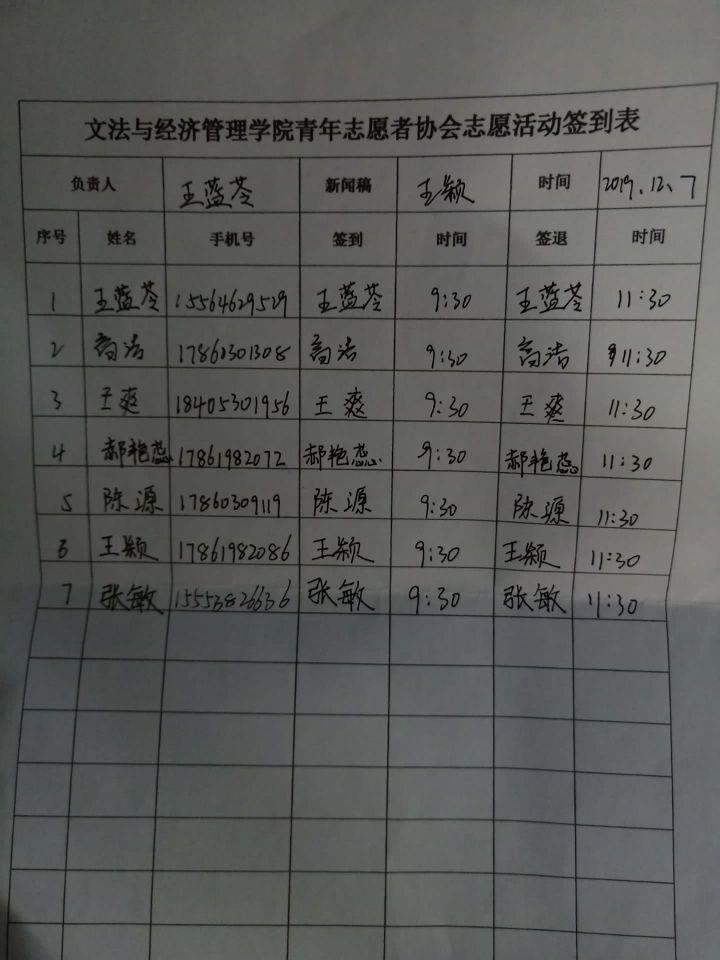 文法与经济管理学院青年志愿者协会志愿活动签到表
负责人 王蓝苓 新闻稿 王颖 时间 2019.12.7
序号 姓名 手机号 签到 时间 签退 时间
1 王蓝苓 15564629529 王蓝苓 9:30 王蓝苓 11:30
2 高洁 17860301308 高洁 9:30 高洁 11:30
3 王爽 18405301956 王爽 9:30 王爽 11:30
4 郝艳蕊 17861982072 郝艳蕊 9:30 郝艳蕊 11:30
5 陈源 17860309119 陈源 9:30 陈源 11:30
6 王颖 17861982086 王颖 9:30 王颖 11:30
7 张敏 15553826636 张敏 9:30 张敏 11:30